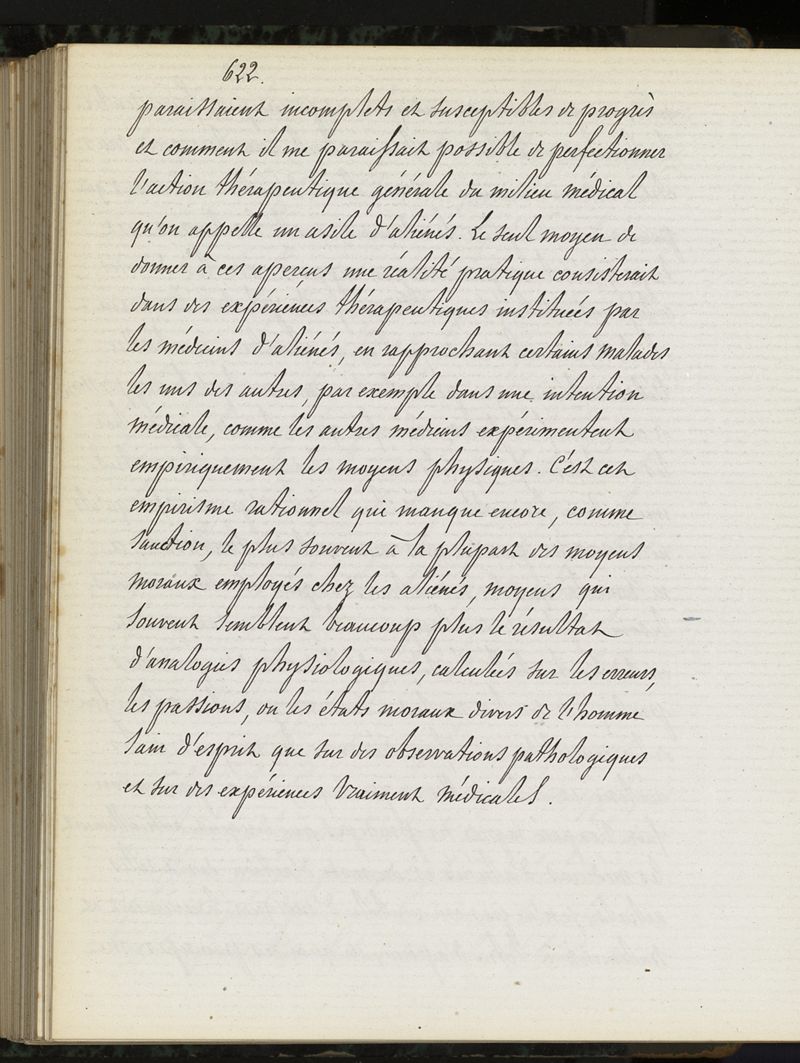 622.
paraissaient incomplets et susceptibles de progrès
et comment il me paraissait possible de perfectionner
l'action thérapeutique générale du milieu médical
qu'on appelle un asile d'aliénés. Le seul moyen de
donner à ces aperçus une réalité pratique consisterait
dans des expériences thérapeutiques instituées par
les médecins d'aliénés, en rapprochant certains malades
les uns des autres, par exemple dans une intention
médicale, comme les autres médecins expérimentent
empiriquement les moyens physiques. C'est cet
empirisme rationnel qui manque encore, comme
sanction, le plus souvent à la plupart des moyens
moraux employés chez les aliénés, moyens qui
souvent semblent beaucoup plus le résultat
d'analogies physiologiques, calculées sur les erreurs,
les passions, ou les états moraux divers de l'homme
sain d'esprit que sur des observations pathologiques
et sur des expériences vraiment médicales.